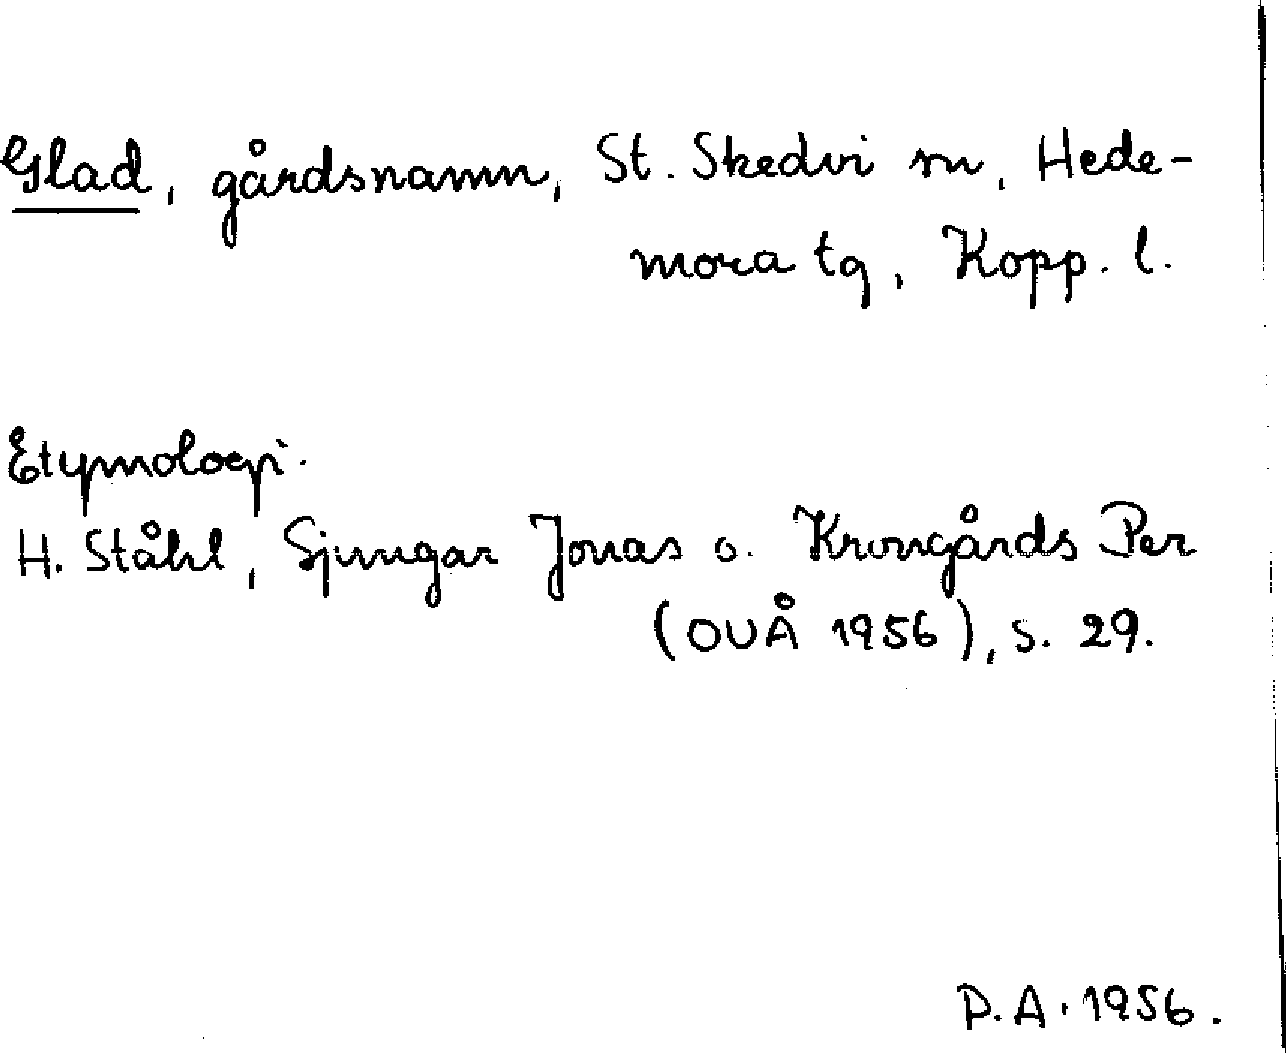 Glad, gårdsnamn, St. Skedvi sn, Hede-
mora tg, Kopp. l.
Etymologi.
H. Ståhl, Sjungar Jonas o. Krongårds Per
(OUÅ 1956), s. 29.
P.A. 1956.